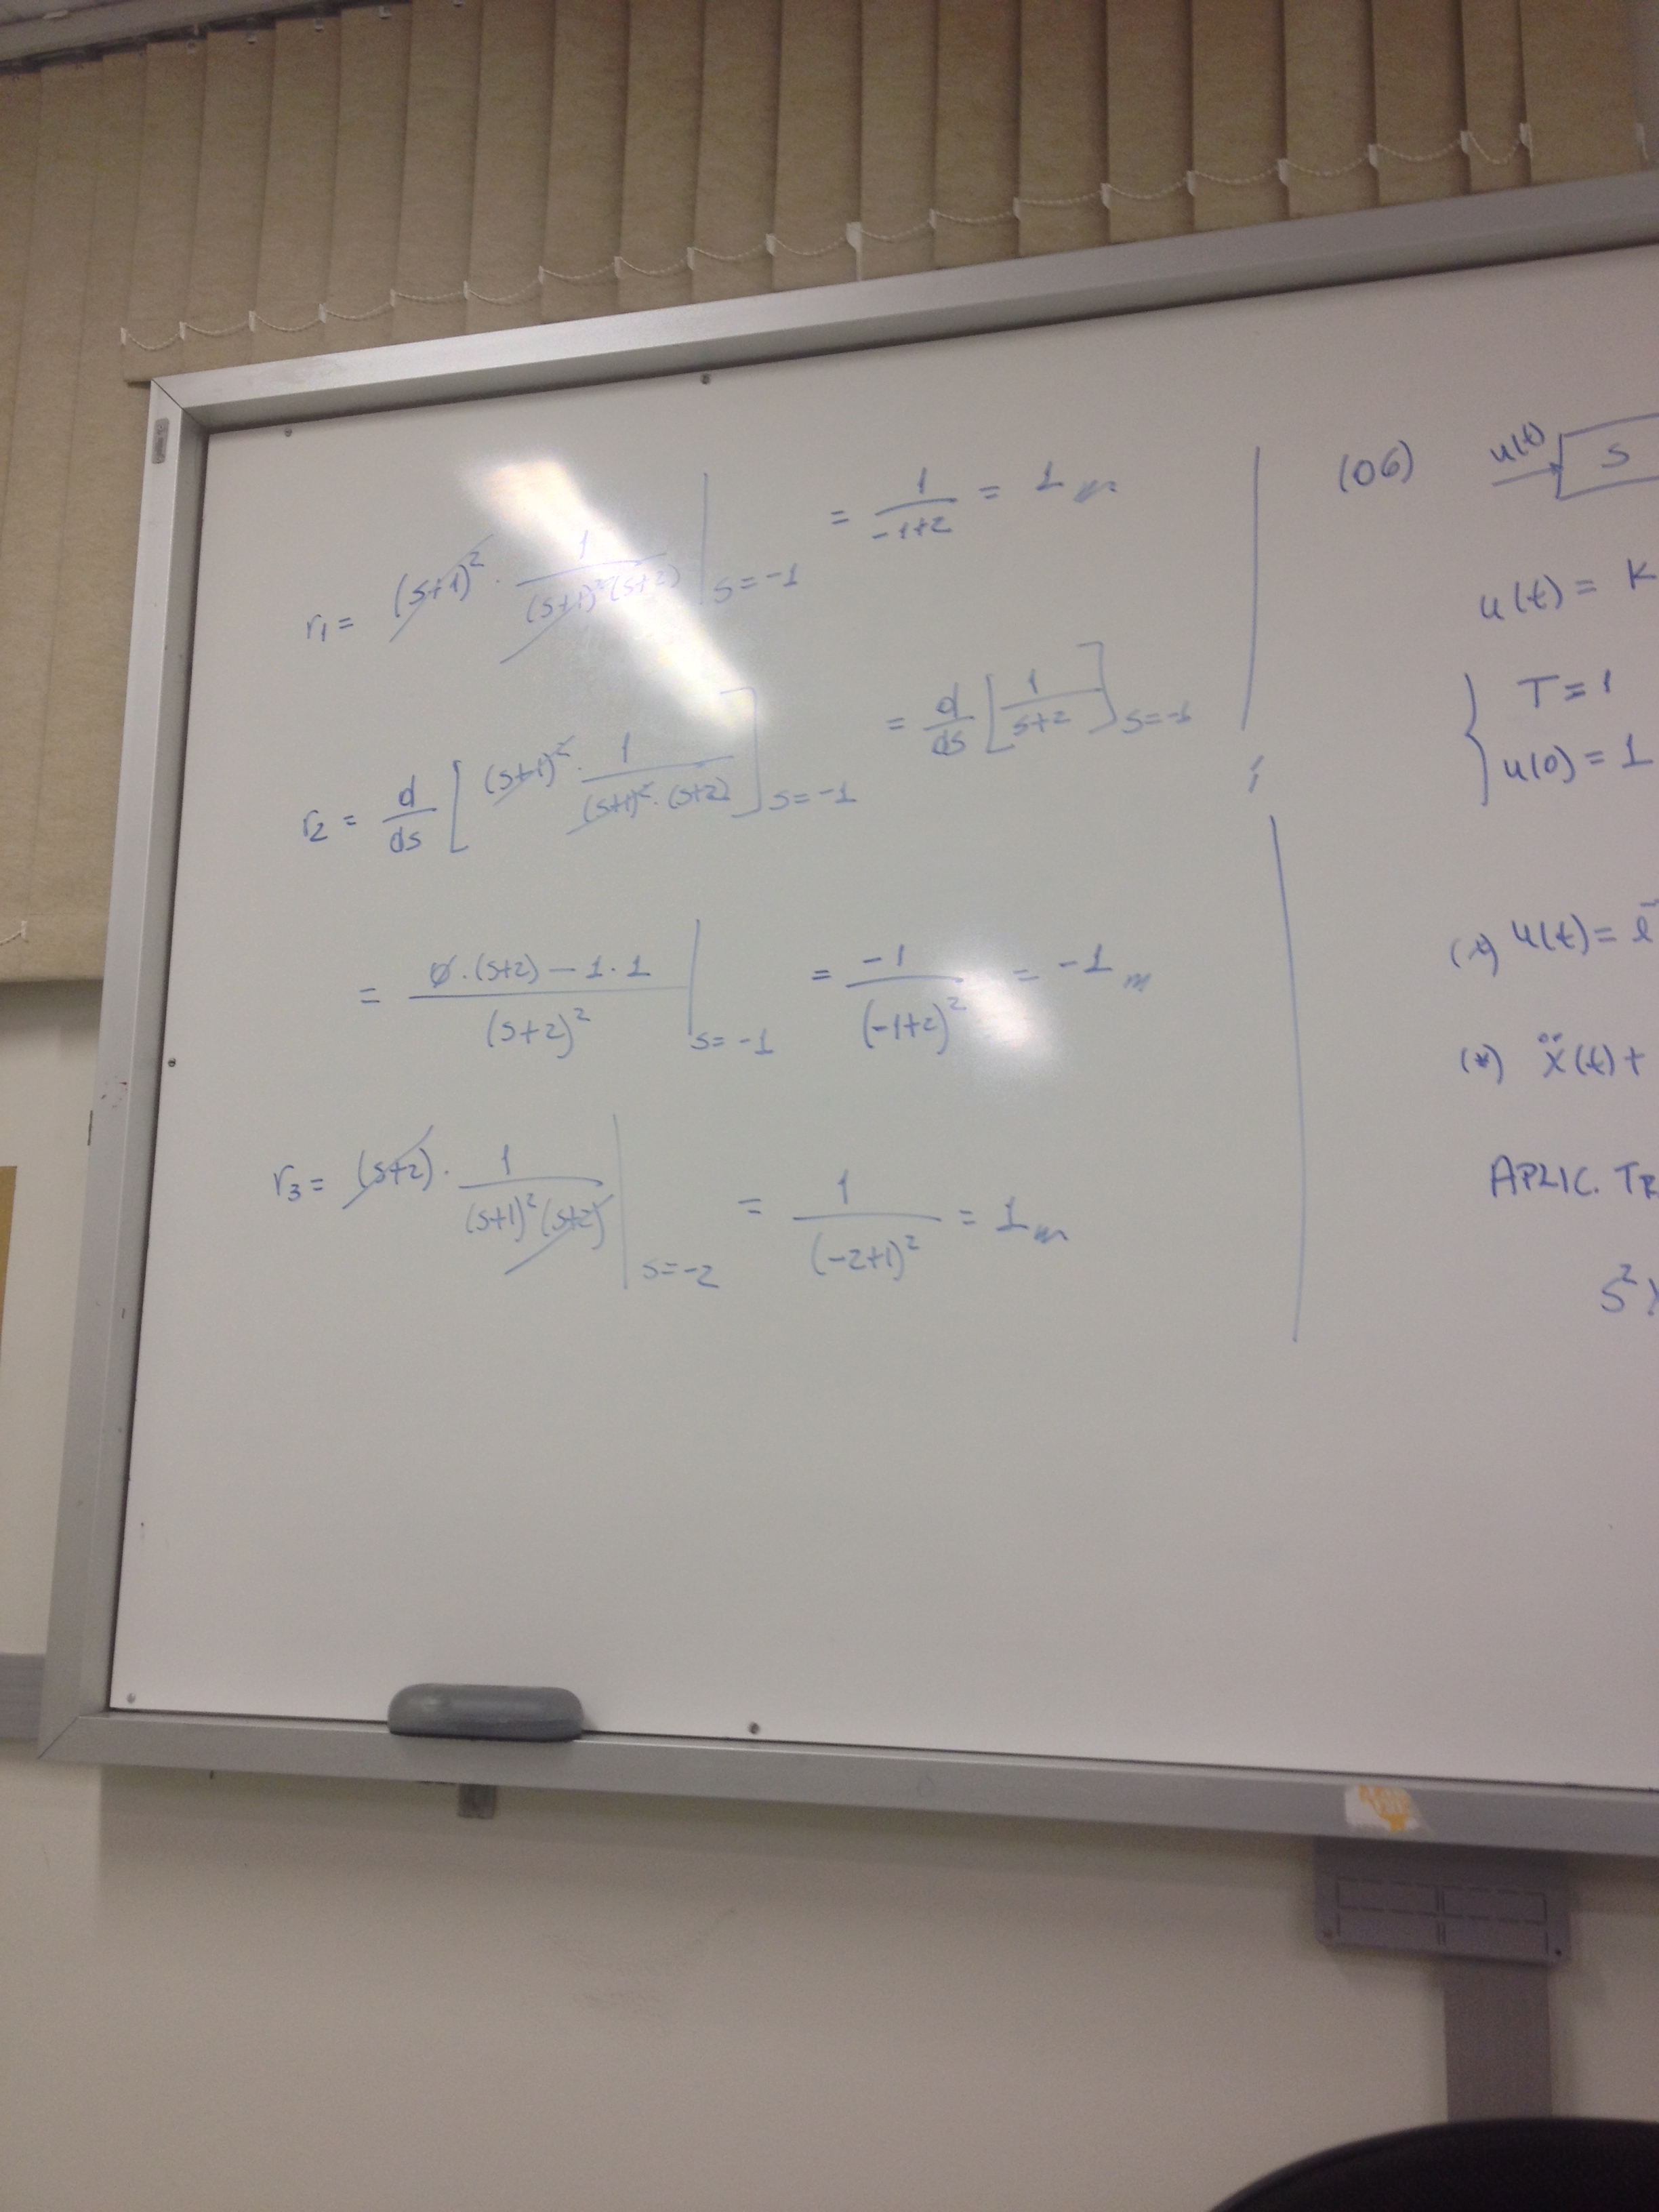 r₁ = (s+1)² · 1/((s+1)²(s+2)) |s=-1 = 1/(-1+2) = 1
r₂ = d/ds [ (s+1)² · 1/((s+1)² · (s+2)) ]s=-1 = d/ds [ 1/(s+2) ]s=-1
= (0 · (s+2) - 1 · 1)/(s+2)² |s=-1 = -1/(-1+2)² = -1
r₃ = (s+2) · 1/((s+1)²(s+2)) |s=-2 = 1/(-2+1)² = 1
(06) u(t) S
u(t) = K
T = 1
u(0) = 1
u(t) = e
(*) ẍ(t) +
APLIC. TR
S²